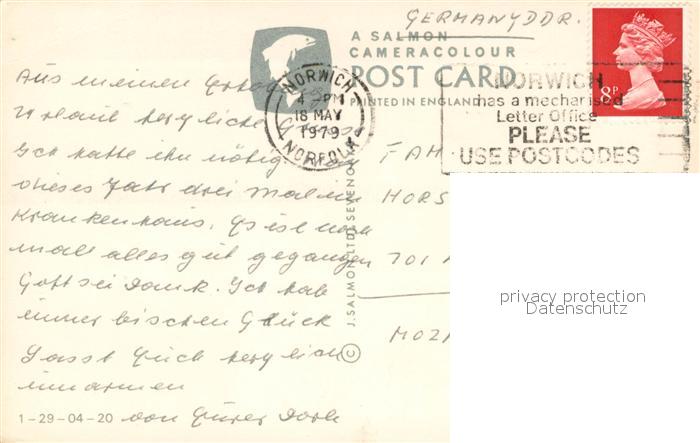 GERMANY DDR.
A SALMON
CAMERACOLOUR
POST CARD
PRINTED IN ENGLAND
NORWICH
4 PM
18 MAY
1979
NORFOLK
NORWICH
has a mechanised
Letter Office
PLEASE
USE POSTCODES
8P
Aus meinem
Urlaub herzliche
Ich hatte ihn nötig, war
dieses Jahr drei Mal im
Krankenhaus. Es ist noch
mal alles gut gegangen
Gott sei Dank. Ich hab
immer bischen Glück
Lasst Euch herzlich
umarmen
von Eurer
1-29-04-20
© J. SALMON LTD. SEVENO
FAM
HORS
701
MOZA
privacy protection
Datenschutz